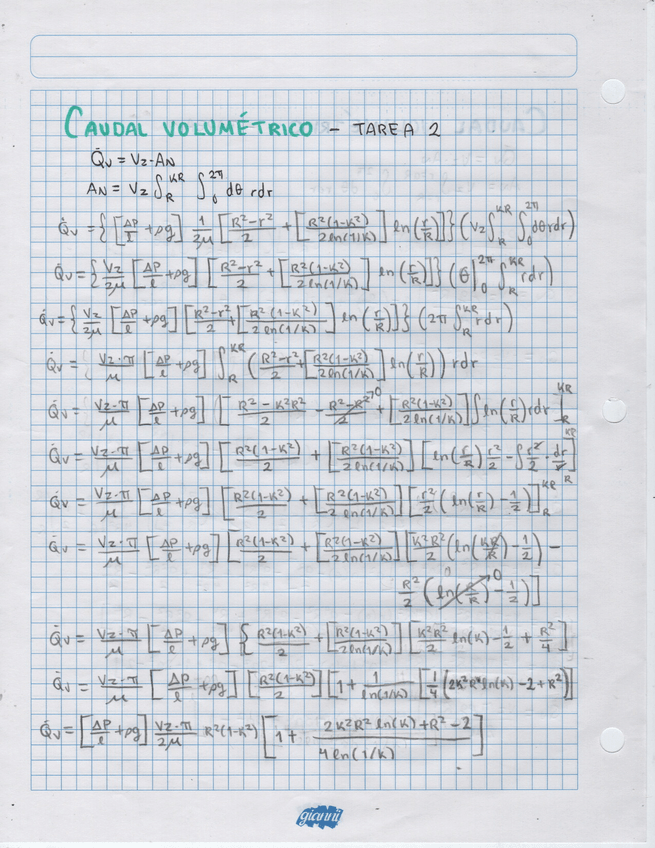 CAUDAL VOLUMÉTRICO - TAREA 2
Q̇v = Vz·AN
AN = Vz ∫_R^KR ∫_0^2π dθ rdr
Q̇v = { [ΔP/l + ρg] 1/2μ [R²-r²/2 + [R²(1-K²)/2ln(1/K)] ln(r/R)]} (Vz ∫_R^KR ∫_0^2π dθrdr)
Q̇v = { Vz/2μ [ΔP/l + ρg] [R²-r²/2 + [R²(1-K²)/2ln(1/K)] ln(r/R)]} (θ|_0^2π ∫_R^KR rdr)
Q̇v = { Vz/2μ [ΔP/l + ρg] [R²-r²/2 + [R²(1-K²)/2ln(1/K)] ln(r/R)]} (2π ∫_R^KR rdr)
Q̇v = Vz·π/μ [ΔP/l + ρg] ∫_R^KR (R²-r²/2 + [R²(1-K²)/2ln(1/K)] ln(r/R)) rdr
Q̇v = Vz·π/μ [ΔP/l + ρg] [R²-K²R²/2 - R²-R²/2 0 + [R²(1-K²)/2ln(1/K)] ∫ln(r/R) rdr |_R^KR
Q̇v = Vz·π/μ [ΔP/l + ρg] [R²(1-K²)/2 + [R²(1-K²)/2ln(1/K)] [ln(r/R) r²/2 - ∫ r²/2 · dr/r]_R^KR
Q̇v = Vz·π/μ [ΔP/l + ρg] [R²(1-K²)/2 + [R²(1-K²)/2ln(1/K)] [r²/2 (ln(r/R) - 1/2)]_R^KR
Q̇v = Vz·π/μ [ΔP/l + ρg] [R²(1-K²)/2 + [R²(1-K²)/2ln(1/K)] [K²R²/2 (ln(KR/R) - 1/2) -
R²/2 (ln(R/R) 0 - 1/2)]
Q̇v = Vz·π/μ [ΔP/l + ρg] { [R²(1-K²)/2 + [R²(1-K²)/2ln(1/K)] [K²R²/2 ln(K) - 1/2 + R²/4]
Q̇v = Vz·π/μ [ΔP/l + ρg] [R²(1-K²)/2] [1 + 1/ln(1/K) [1/4 (2K²R² ln(K) - 2 + R²)]
Q̇v = [ΔP/l + ρg] Vz·π/2μ R²(1-K²) [1 + 2K²R² ln(K) + R² - 2/4ln(1/K)]